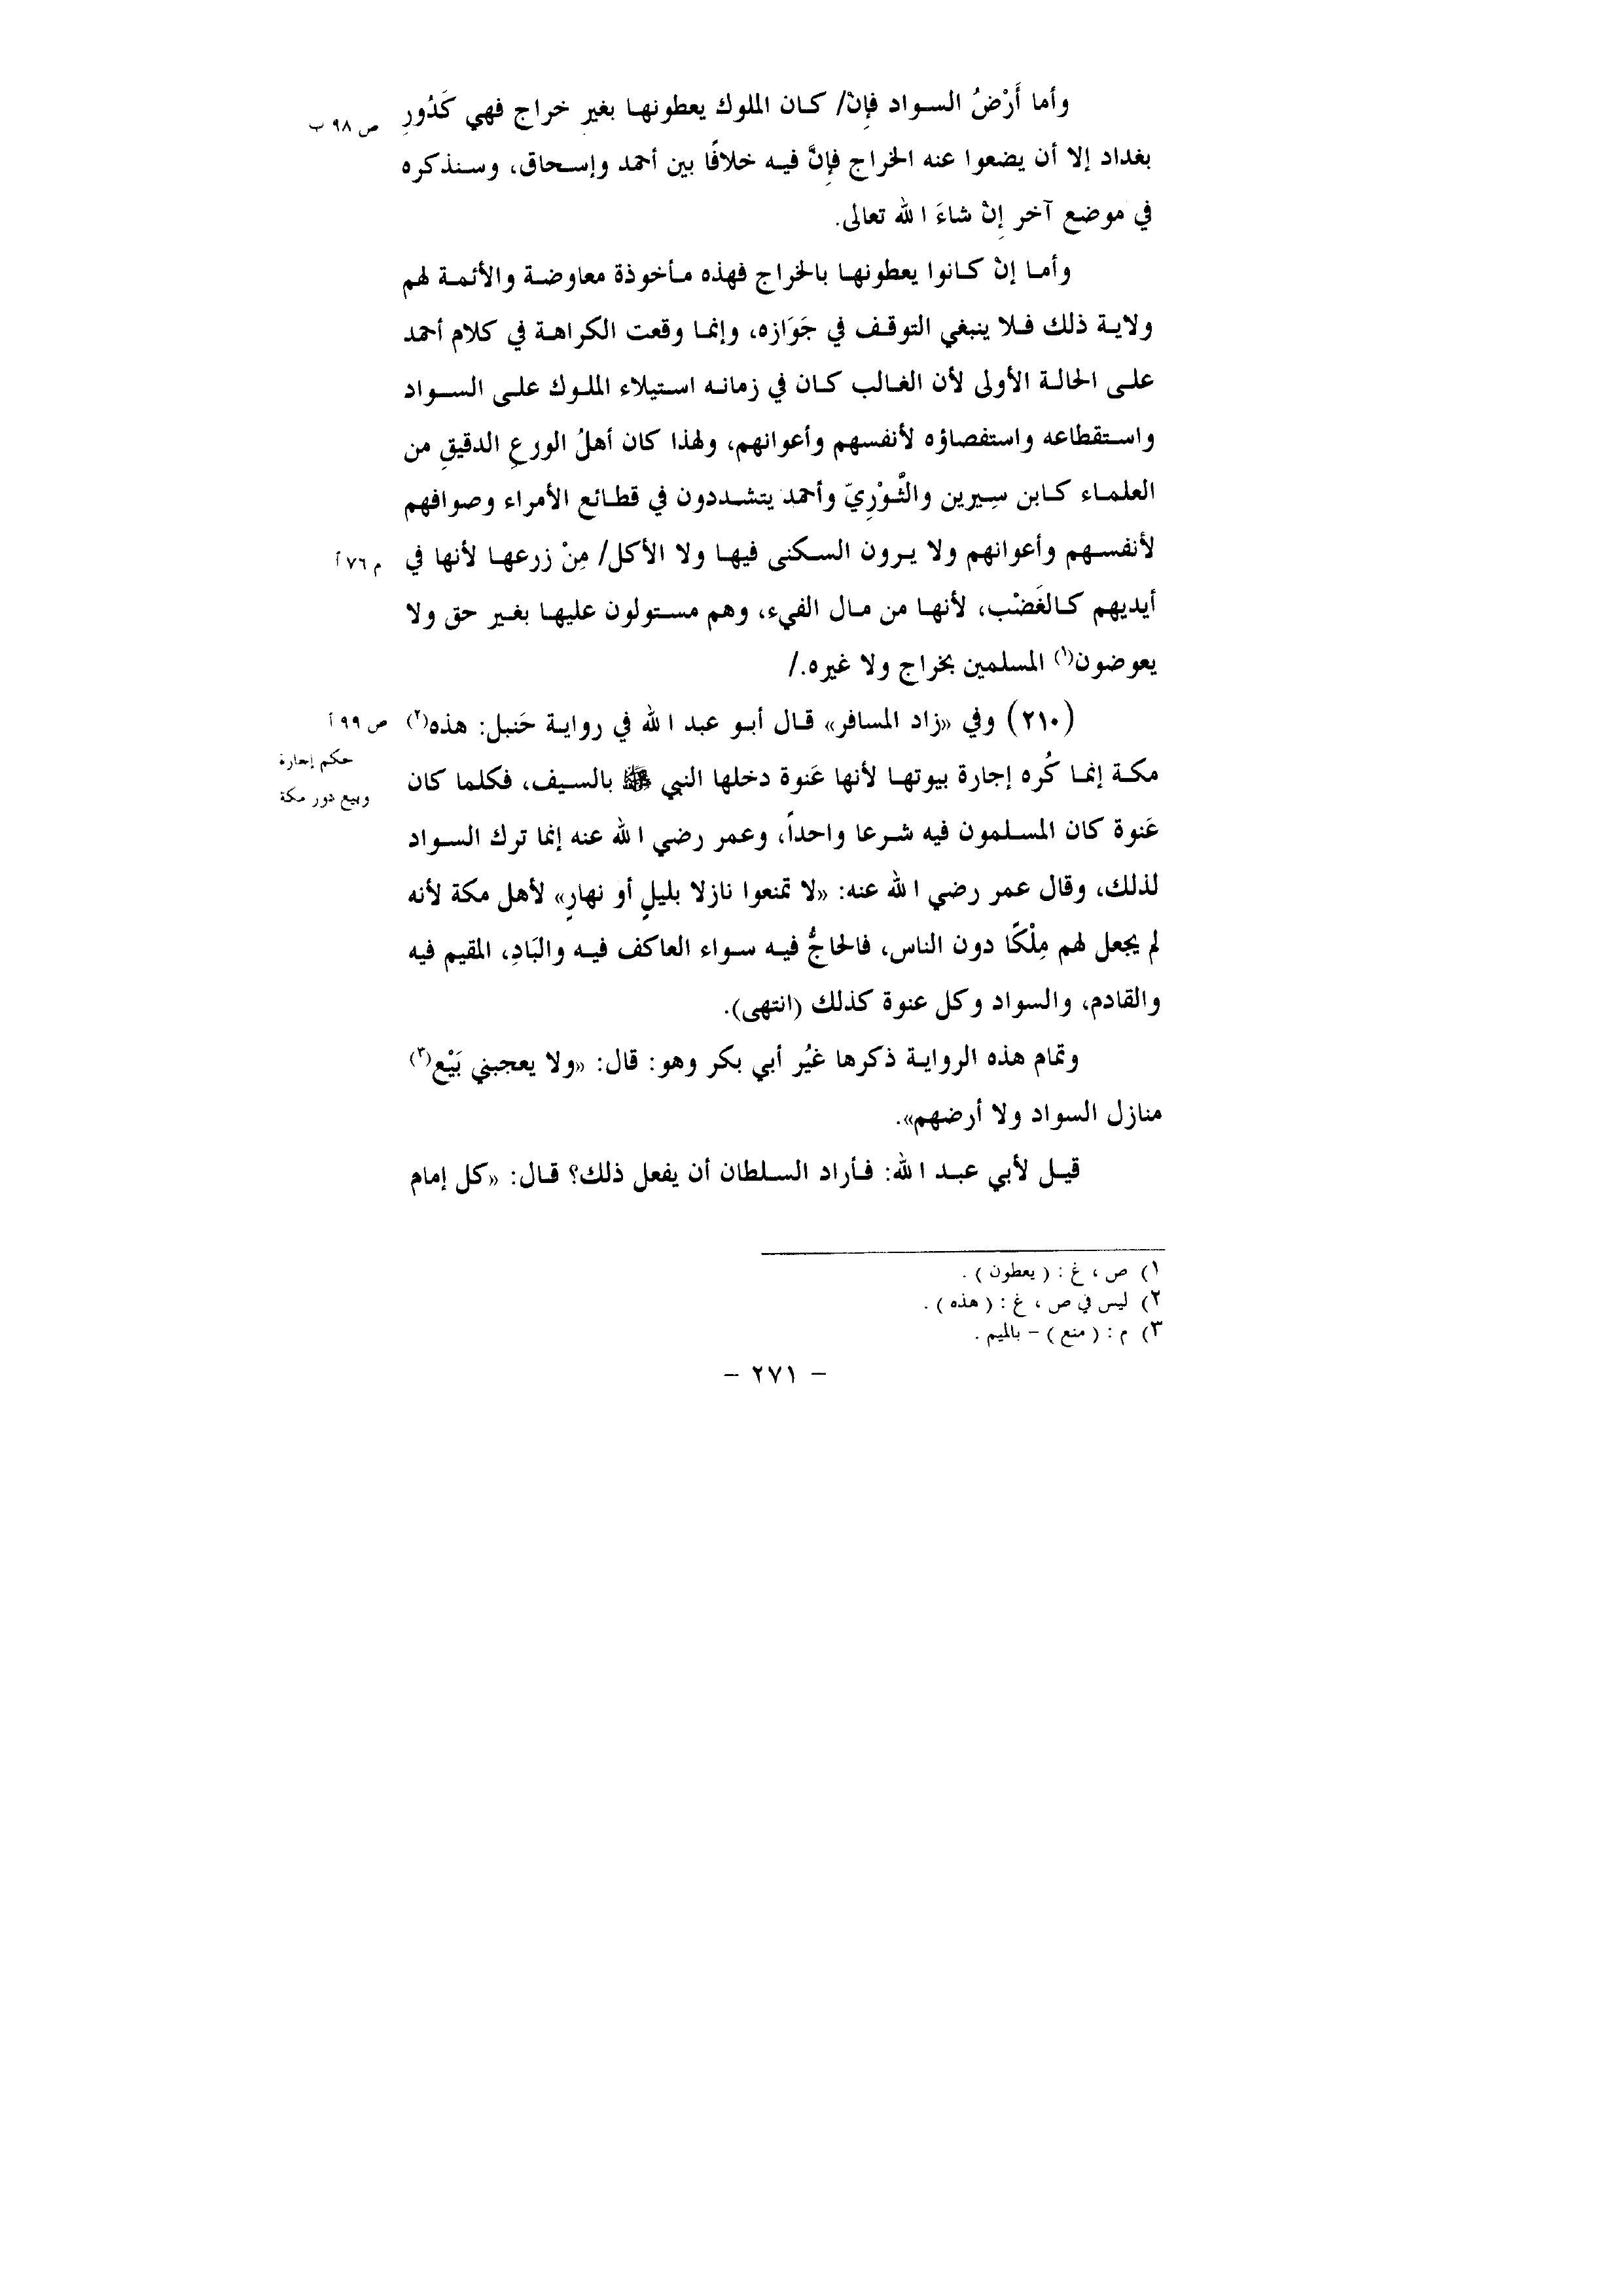 وأما أَرْضُ السواد فإِنْ/ كان الملوك يعطونها بغير خراج فهي كَدُورِ
ص ٩٨ ب
بغداد إلا أن يضعوا عنه الخراج فإِنَّ فيه خلافًا بين أحمد وإسحاق، وسنذكره
في موضع آخر إِنْ شاءَ الله تعالى.
وأما إنْ كانوا يعطونها بالخراج فهذه مأخوذة معاوضة والأئمة لهم
ولاية ذلك فلا ينبغي التوقف في جَوَازه، وإنما وقعت الكراهة في كلام أحمد
على الحالة الأولى لأن الغالب كان في زمانه استيلاء الملوك على السواد
واستقطاعه واستفصاؤه لأنفسهم وأعوانهم، ولهذا كان أهلُ الورعِ الدقيقِ من
العلماء كابن سِيرين والثَّوْرِيّ وأحمد يتشددون في قطائع الأمراء وصوافهم
لأنفسهم وأعوانهم ولا يرون السكنى فيها ولا الأكل/ مِنْ زرعها لأنها في
م ٧٦ أ
أيديهم كالغَصْب، لأنها من مال الفيء، وهم مستولون عليها بغير حق ولا
يعوضون(١) المسلمين بخراج ولا غيره./
(٢١٠) وفي «زاد المسافر» قال أبو عبد الله في رواية حَنبل: هذه(٢)
ص ٩٩ أ
حكم إجارة
وبيع دور مكة
مكة إنما كُره إجارة بيوتها لأنها عَنوة دخلها النبي ﷺ بالسيف، فكلما كان
عَنوة كان المسلمون فيه شرعا واحداً، وعمر رضي الله عنه إنما ترك السواد
لذلك، وقال عمر رضي الله عنه: «لا تمنعوا نازلا بليلٍ أو نهارٍ» لأهل مكة لأنه
لم يجعل لهم مِلْكًا دون الناس، فالحاجُّ فيه سواء العاكف فيه والبَادِ، المقيم فيه
والقادم، والسواد وكل عنوة كذلك (انتهى).
وتمام هذه الرواية ذكرها غيُر أبي بكر وهو: قال: «ولا يعجبني بَيْع(٣)
منازل السواد ولا أرضهم».
قيل لأبي عبد الله: فأراد السلطان أن يفعل ذلك؟ قال: «كل إمام
١) ص ، غ : ( يعطون ) .
٢) ليس في ص ، غ : ( هذه ) .
٣) م : ( منع ) – بالميم .
– ٢٧١ –